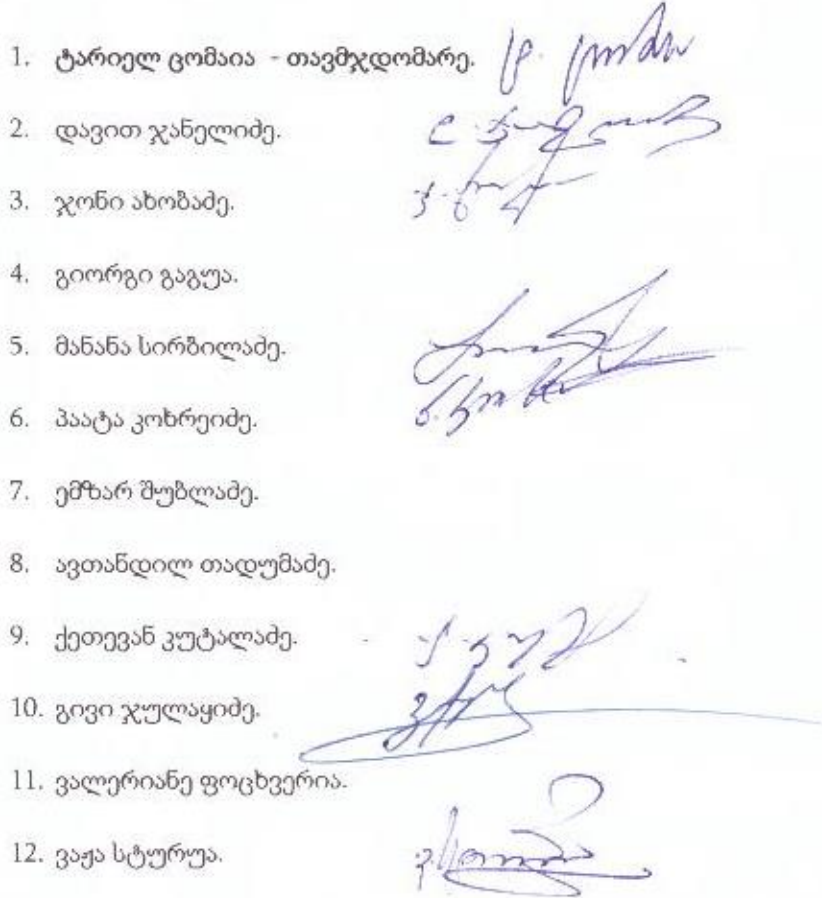 1. ტარიელ ცომაია - თავმჯდომარე.
2. დავით ჯანელიძე.
3. ჯონი ახობაძე.
4. გიორგი გაგუა.
5. მანანა სირბილაძე.
6. პაატა კოხრეიძე.
7. ემზარ შუბლაძე.
8. ავთანდილ თადუმაძე.
9. ქეთევან კუტალაძე.
10. გივი ჯულაყიძე.
11. ვალერიანე ფოცხვერია.
12. ვაჟა სტურუა.